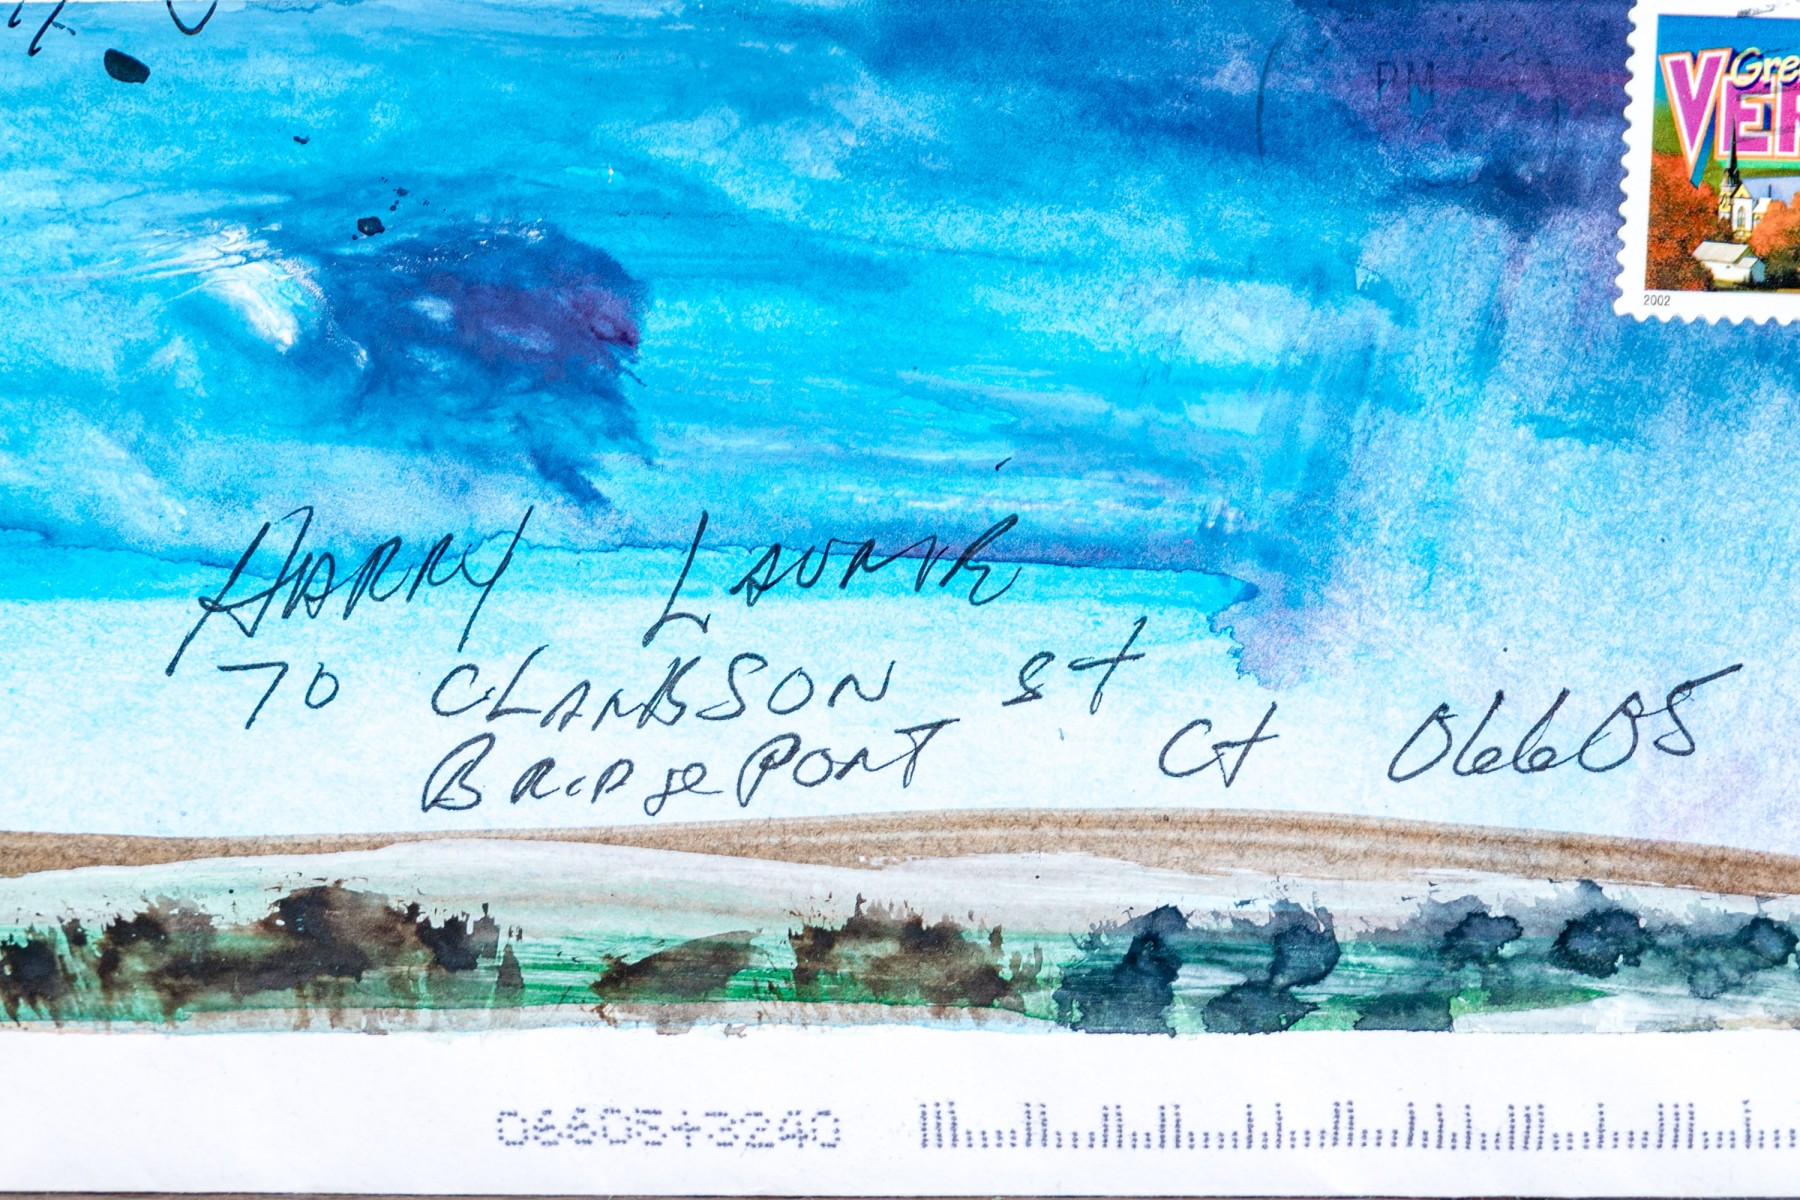 PM
Gre
VER
2002
HARRY LAURIE
70 CLARKSON St
BRIDgePORT Ct 06605
06605+3240